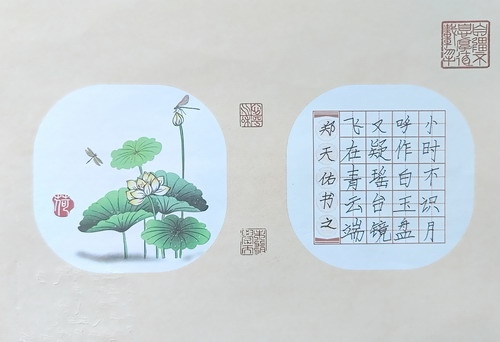 小时不识月
呼作白玉盘
又疑瑶台镜
飞在青云端
郑天佑书之